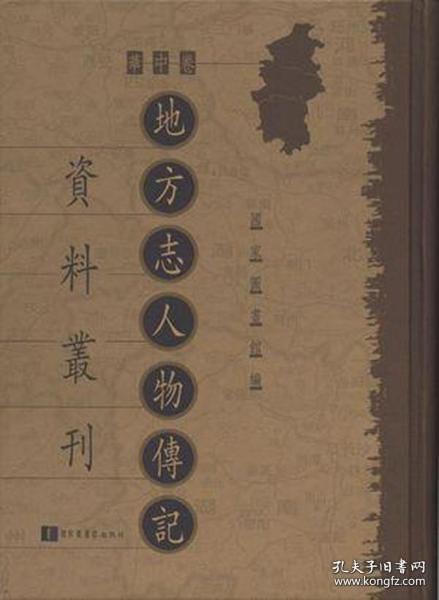 華中卷
地方志人物傳記
資料叢刊
國家圖書館編
國家圖書館出版社
孔夫子旧书网
www.kongfz.com